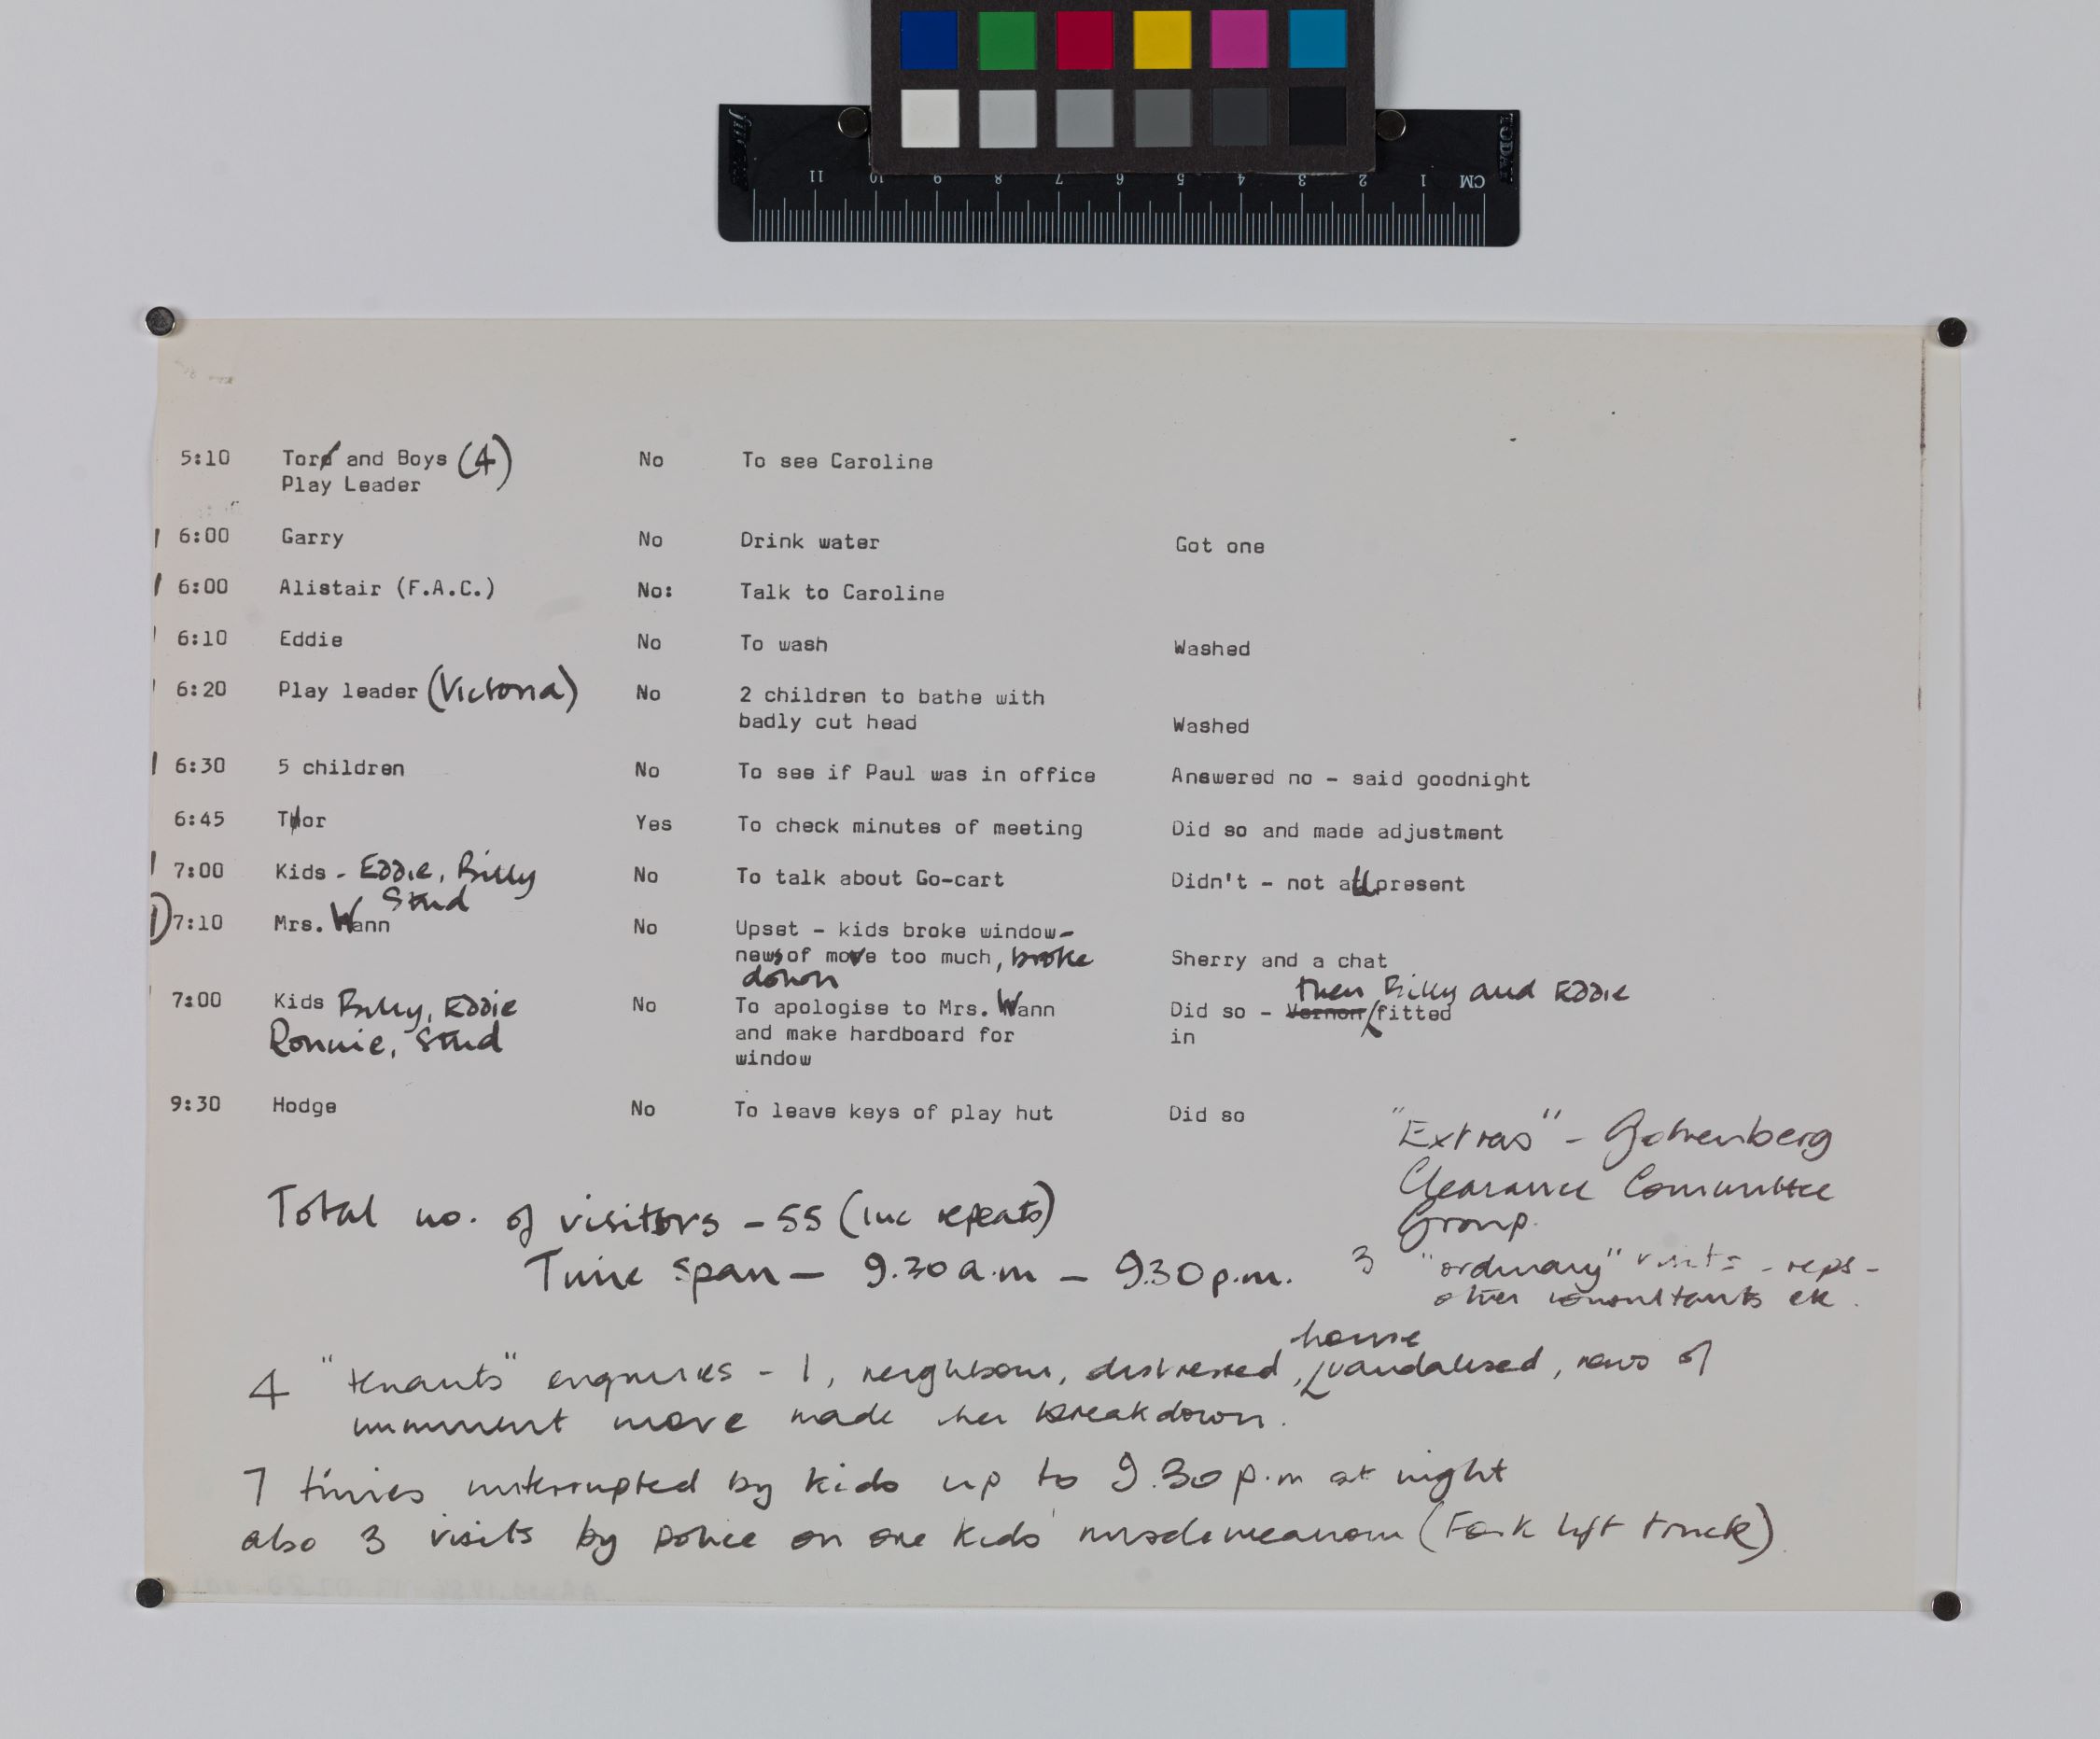 11 10 9 8 7 6 5 4 3 2 1 CM
5:10 Tor and Boys (4) No To see Caroline
Play Leader
6:00 Garry No Drink water Got one
6:00 Alistair (F.A.C.) No: Talk to Caroline
6:10 Eddie No To wash Washed
6:20 Play leader (Victoria) No 2 children to bathe with
badly cut head Washed
6:30 5 children No To see if Paul was in office Answered no - said goodnight
6:45 Thor Yes To check minutes of meeting Did so and made adjustment
7:00 Kids - Eddie, Billy No To talk about Go-cart Didn't - not all present
Stud
7:10 Mrs. Wann No Upset - kids broke window-
news of move too much, broke Sherry and a chat
down
then Billy and Eddie
7:00 Kids Billy, Eddie No To apologise to Mrs. Wann Did so - Vernon fitted
Ronnie, Stud and make hardboard for in
window
9:30 Hodge No To leave keys of play hut Did so
"Extras" - Gothenberg
Clearance Committee
Group.
Total no. of visitors - 55 (inc repeats)
Time span - 9.30 a.m - 9.30 p.m.
3 "ordinary" visits - reps -
other consultants etc.
house
4 "tenants" enquiries - 1, neighbour, distressed, vandalised, news of
imminent move made her breakdown.
7 times interrupted by kids up to 9.30 p.m at night
also 3 visits by police on one kids' misdemeanour (Fork lift truck)